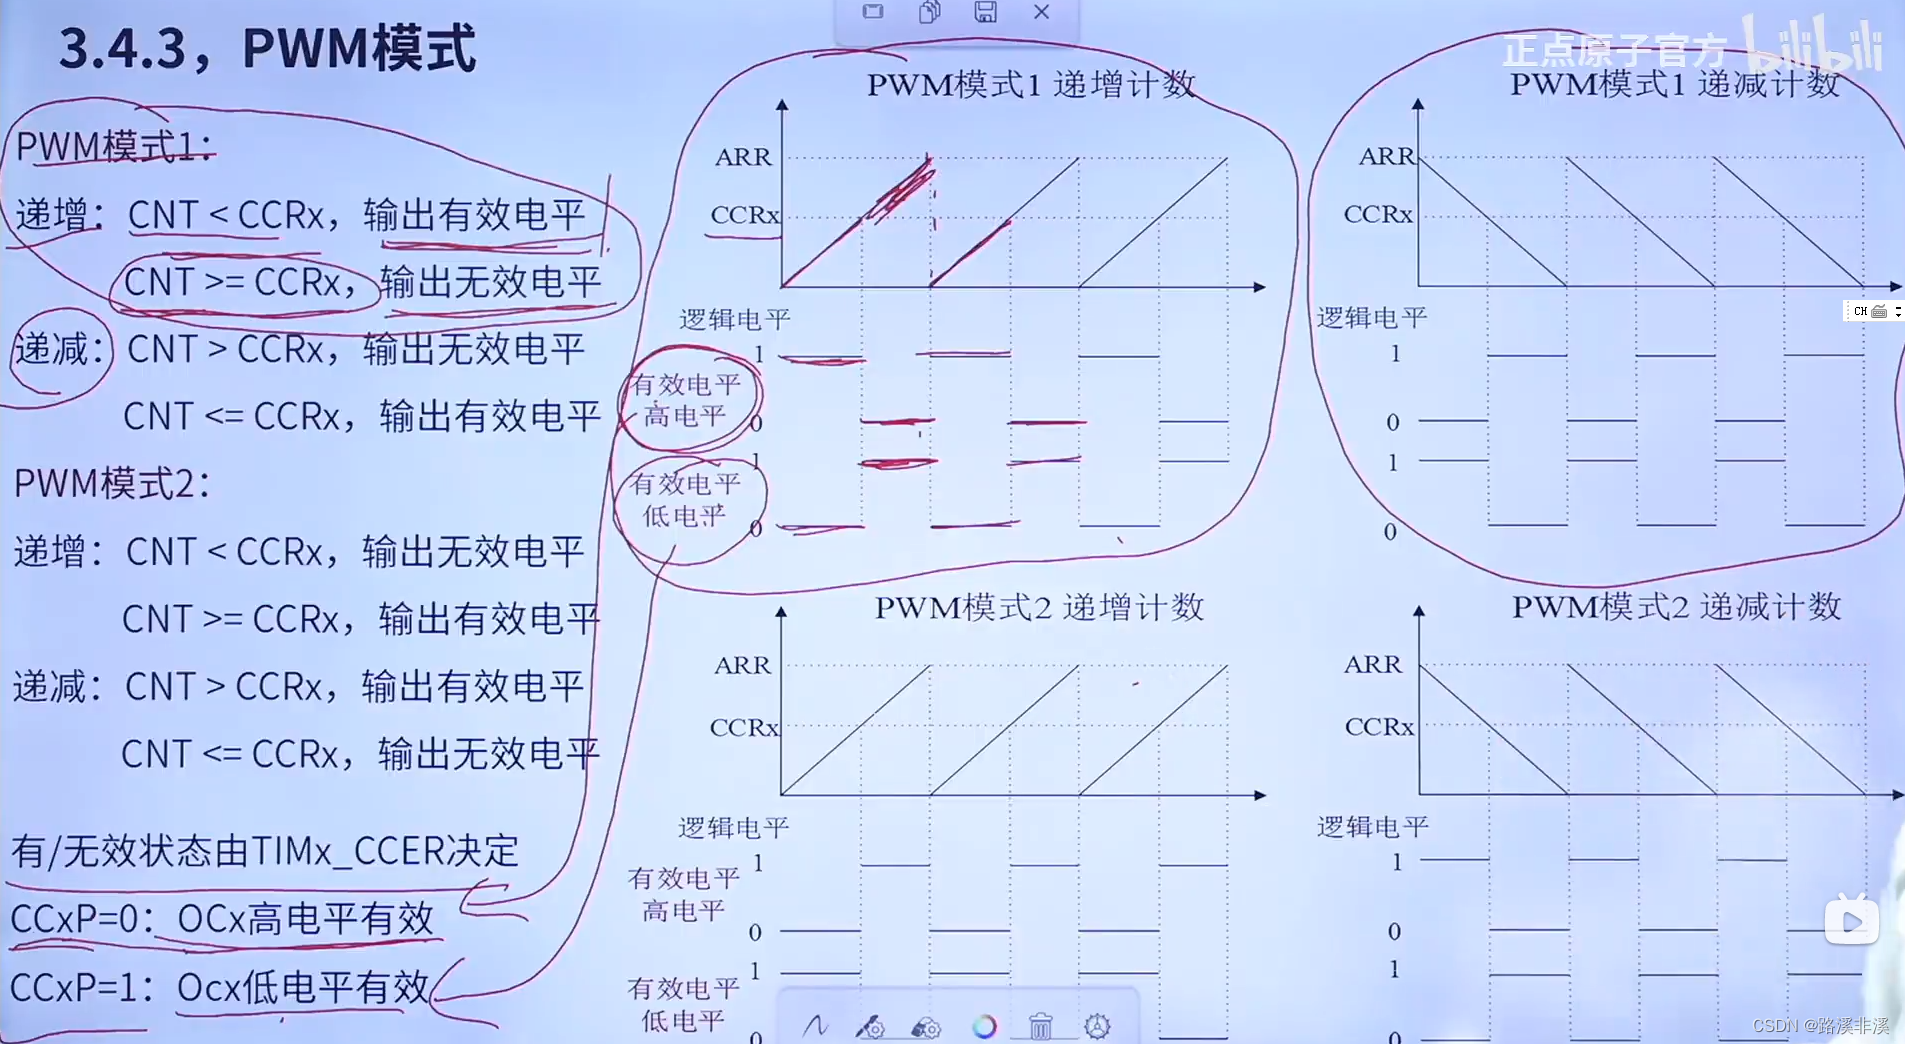 3.4.3，PWM模式
PWM模式1：
递增：CNT < CCRx，输出有效电平
CNT >= CCRx，输出无效电平
递减：CNT > CCRx，输出无效电平
CNT <= CCRx，输出有效电平
PWM模式2：
递增：CNT < CCRx，输出无效电平
CNT >= CCRx，输出有效电平
递减：CNT > CCRx，输出有效电平
CNT <= CCRx，输出无效电平
有/无效状态由TIMx_CCER决定
CCxP=0：OCx高电平有效
CCxP=1：Ocx低电平有效
PWM模式1 递增计数
ARR
CCRx
逻辑电平
1
有效电平
高电平
0
1
有效电平
低电平
0
正点原子官方 bilibili
PWM模式1 递减计数
ARR
CCRx
CH
逻辑电平
1
0
1
0
PWM模式2 递增计数
ARR
CCRx
逻辑电平
1
有效电平
高电平
0
1
有效电平
低电平
0
PWM模式2 递减计数
ARR
CCRx
逻辑电平
1
0
1
0
CSDN @路溪非溪